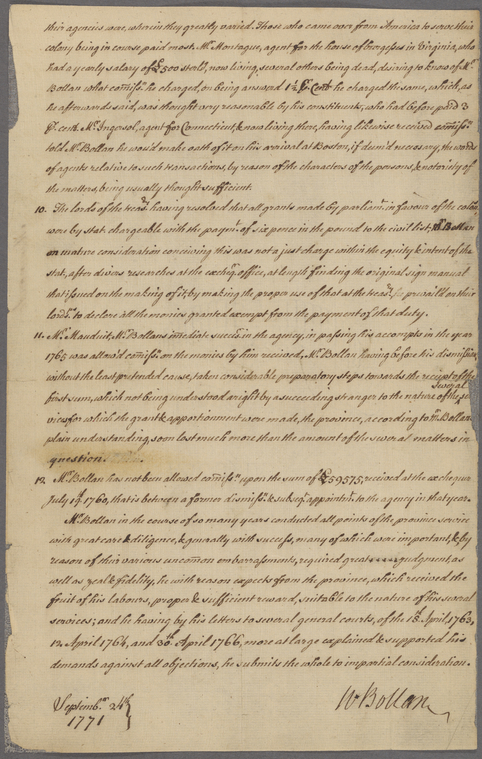 their agencies were, wherein they greatly varied. Those who came over from America to serve their
colony being in course paid most. Mr. Montague, agent for the house of burgesses in Virginia, who
had a yearly salary of £500 sterls, now living, several others being dead, desiring to know of Mr.
Bollan what comisn. he charged, on being answd. 1½ P. Cent he charged the same, which, as
he afterwards said, was thought very reasonable by his constituents, who had before paid 3
P. cent. Mr. Ingersol, agent for Connecticut, & now living there, having likewise received comissn.
told Mr. Bollan he would make oath of it on his arrival at Boston, if deem'd necessary, the words
of agents relative to such transactions, by reason of the characters of the persons, & notoriety of
the matters, being usually thought sufficient.
10. The lords of the treasy. having resolved that all grants made by parliamt. in favour of the colonies
were by stat. chargeable with the paymt. of six pence in the pound to the civil list, Mr. Bollan
on mature consideration conceiving this was not a just charge within the equity & intent of the
stat, after divers researches at the excheqr. office, at length finding the original sign manual
that issued on the making of it, by making the proper use of that at the treasy. prevail'd on their
lordps. to declare all the monies granted exempt from the payment of that duty.
11. Mr. Mauduit, Mr. Bollans imediate successr. in the agency, in passing his accompts in the year
1765 was allow'd comissn. on the monies by him received. Mr. Bollan having before his dismission,
without the least pretended cause, taken considerable preparatory steps towards the receipt of the
first sum, which not being understood aright by a succeeding stranger to the nature of the several ser
vices for which the grant & apportionment were made, the province, according to Mr. Bollans
plain understanding, soon lost much more than the amount of the several matters in
question.
12. Mr. Bollan has not been allowed comissn. upon the sum of £59575, received at the exchequer
July 19th. 1760, that is between a former dismissn. & subseqt. appointmt. to the agency in that year.
Mr. Bollan in the course of so many years conducted all points of the province service
with great care & diligence, & generally with success, many of which were important, & by
reason of their various uncomon embarrassments, required great judgment, as
well as zeal & fidelity, he with reason expects from the province, which received the
fruit of his labours, proper & sufficient reward, suitable to the nature of his several
services; and he having by his letters to several general courts, of the 18th. April 1763,
12 April 1764, and 30th. April 1766, more at large explained & supported his
demands against all objections, he submits the whole to impartial consideration.
Septembr. 24th.
1771
W Bollan